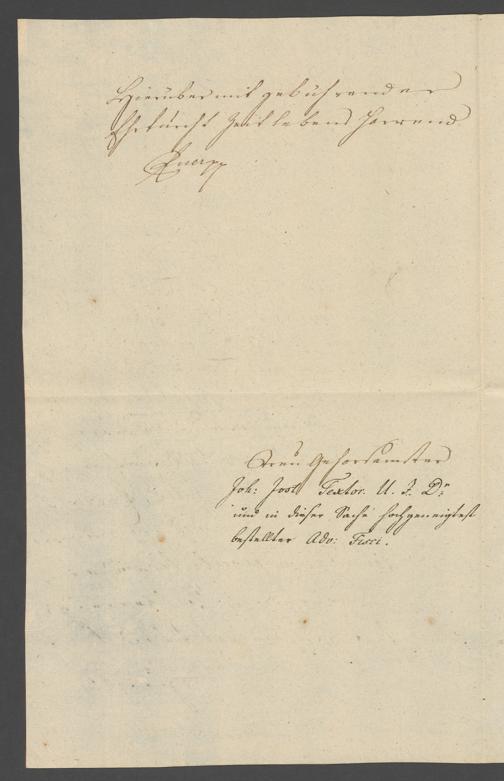 Hierüber mit gebührender
Ehrfurcht Zeit lebens harrend
Treu Gehorsamster
Joh: Jost Textor. U. J. Dr:
und in dieser Sache hochgeneigtest
bestellter Adv: Fisci.